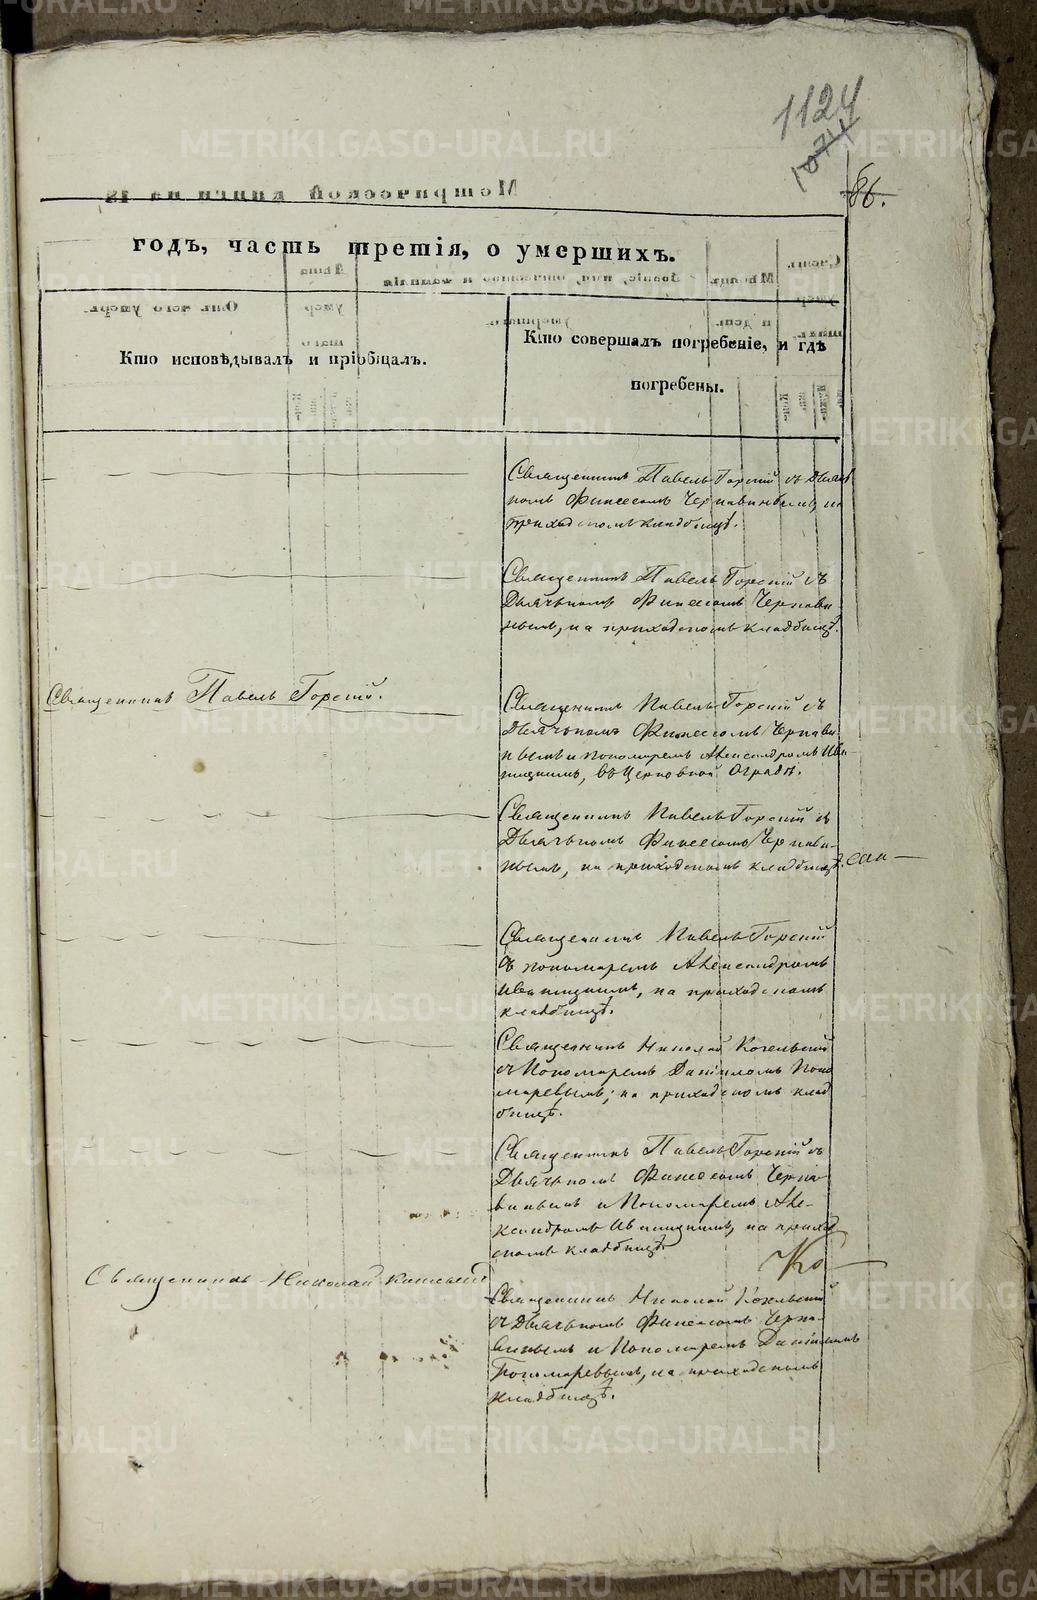 1124
1071
86.
годъ, часть третія, о умершихъ.
Кто исповѣдывалъ и пріобщалъ.
Кто совершалъ погребеніе, и гдѣ
погребены.
Священникъ Павелъ Горскій съ Дьяч
комъ Финеесомъ Чернавинымъ, на
приходскомъ кладбищѣ.
Священникъ Павелъ Горскій съ
Дьячькомъ Финеесомъ Чернави-
нымъ, на приходскомъ кладбищѣ.
Священникъ Павелъ Горскій.
Священникъ Павелъ Горскій съ
Дьячькомъ Финеесомъ Чернави
нымъ и пономаремъ Александромъ Ива-
нищимъ, въ Церковной Оградѣ.
Священникъ Павелъ Горскій съ
Дьячькомъ Финеесомъ Чернави-
нымъ, на приходскомъ кладбищѣ.
Священникъ Павелъ Горскій
съ пономаремъ Александромъ
на приходскомъ
кладбищѣ.
Священникъ Николай Козельский
съ Пономаремъ Даніиломъ Поно
маревымъ, на приходскомъ клад
бищѣ.
Священникъ Павелъ Горскій съ
Дьячькомъ Финеесомъ Черна-
винымъ и Пономаремъ Але-
ксандромъ на приход
скомъ кладбищѣ.
Ко
Священникъ Николай
Священникъ Николай Козельский
съ Дьячькомъ Финеесомъ Черна-
винымъ и Пономаремъ Даніиломъ
Пономаревымъ, на приходскомъ
кладбищѣ.
METRIKI.GASO-URAL.RU